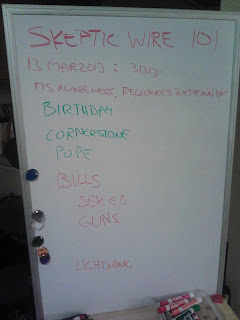 SKEPTIC WIRE 101
13 MAR 2013 : 31313
MS AWARENESS, REGISTERED DIETITIAN DAY
BIRTHDAY
CORNERSTONE
POPE
BILLS
SEX ED
GUNS
LIGHTNING